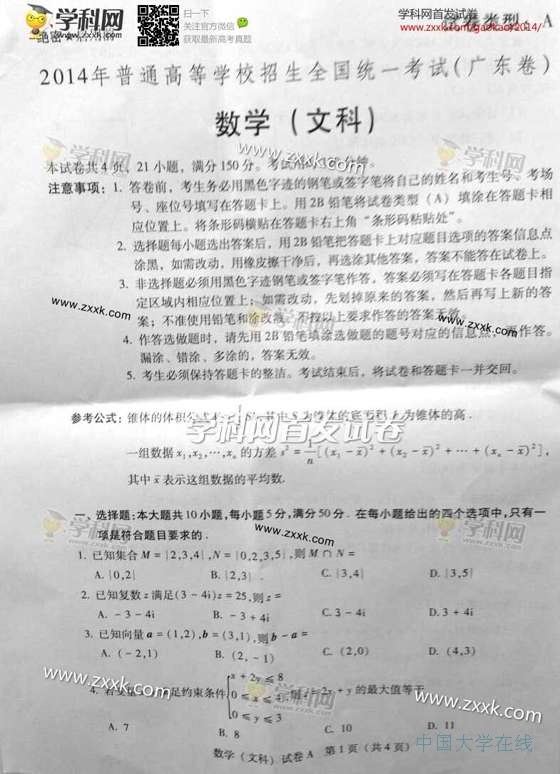 学科网
www.zxxk.com
扫一下
关注官方微信
获取最新高考真题
学科网首发试卷
www.zxxk.com/gaokao/2014/
绝密★启用前
试卷类型：A
2014年普通高等学校招生全国统一考试(广东卷)
数学(文科)
www.zxxk.com
本试卷共4页，21小题，满分150分。考试用时
钟。
注意事项：1. 答卷前，考生务必用黑色字迹的钢笔或签字笔将自己的姓名和考生号、考场
号、座位号填写在答题卡上。用2B铅笔将试卷类型（A）填涂在答题卡相
应位置上。将条形码横贴在答题卡右上角“条形码粘贴处”。
2. 选择题每小题选出答案后，用2B铅笔把答题卡上对应题目选项的答案信息点
涂黑，如需改动，用橡皮擦干净后，再选涂其他答案，答案不能答在试卷上。
3. 非选择题必须用黑色字迹钢笔或签字笔作答，答案必须写在答题卡各题目指
定区域内相应位置上；如需改动，先划掉原来的答案，然后再写上新的答
案；不准使用铅笔和涂改液。不按以上要求作答的答案无效。
4. 作答选做题时，请先用2B铅笔填涂选做题的题号对应的信息点，再作答。
漏涂、错涂、多涂的，答案无效。
5. 考生必须保持答题卡的整洁。考试结束后，将试卷和答题卡一并交回。
参考公式：锥体的体积公式
其中S为锥体的底面积,h为锥体的高.
学科网首发试卷
一组数据x₁,x₂,…,xₙ的方差s²=1/n[(x₁-x̄)²+(x₂-x̄)²+…+(xₙ-x̄)²],
其中x̄表示这组数据的平均数.
一、选择题:本大题共10小题,每小题5分,满分50分. 在每小题给出的四个选项中,只有一
项是符合题目要求的.
1. 已知集合M={2,3,4},N={0,2,3,5},则M∩N=
A. {0,2} B. {2,3} C. {3,4} D. {3,5}
2. 已知复数z满足(3-4i)z=25,则z=
A. -3-4i B. -3+4i C. 3-4i D. 3+4i
3. 已知向量a=(1,2),b=(3,1),则b-a=
A. (-2,1) B. (2,-1) C. (2,0) D. (4,3)
4. 若变量
足约束条件{x+2y≤8
0≤x≤4
0≤y≤3
则z=2x+y的最大值等于
A. 7 B. 8 C. 10 D. 11
数学(文科)试卷A 第1页(共4页)
中国大学在线